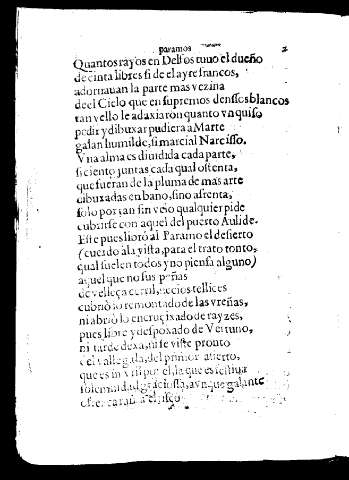 paramos 2
Quantos rayos en Delfos tuuo el dueño
de cinta libres si de el ayre francos,
adornauan la parte mas vezina
de el Cielo que en supremos denssos blancos
tan vello le adaxiaron quanto vn quiso
pedir y dibuxar pudiera a Marte
galan humilde, si marcial Narcisso.
Vna alma es diuidida cada parte,
si ciento juntas cada qual ostenta,
que fueran de la pluma de mas arte
dibuxadas en bano, sino afrenta,
solo por tan sin velo qualquier pide
cubrirse con aquel del puerto Aulide.
Este pues libró al Paramo el desierto
(cuerdo à la vista, para el trato tonto,
qual suelen todos y no piensa alguno)
aquel que no sus peñas
de velleça necios tellices
cubrió lo remontado de las vreñas,
ni abrió lo encruçixado de rayzes,
pues libre y despoxado de Vertuno,
ni tarde dexa, ni se viste pronto
el vallegada, del primor abierto,
que es in vtil por el, la que es festiua
solemnidad graciossa, aunque galante